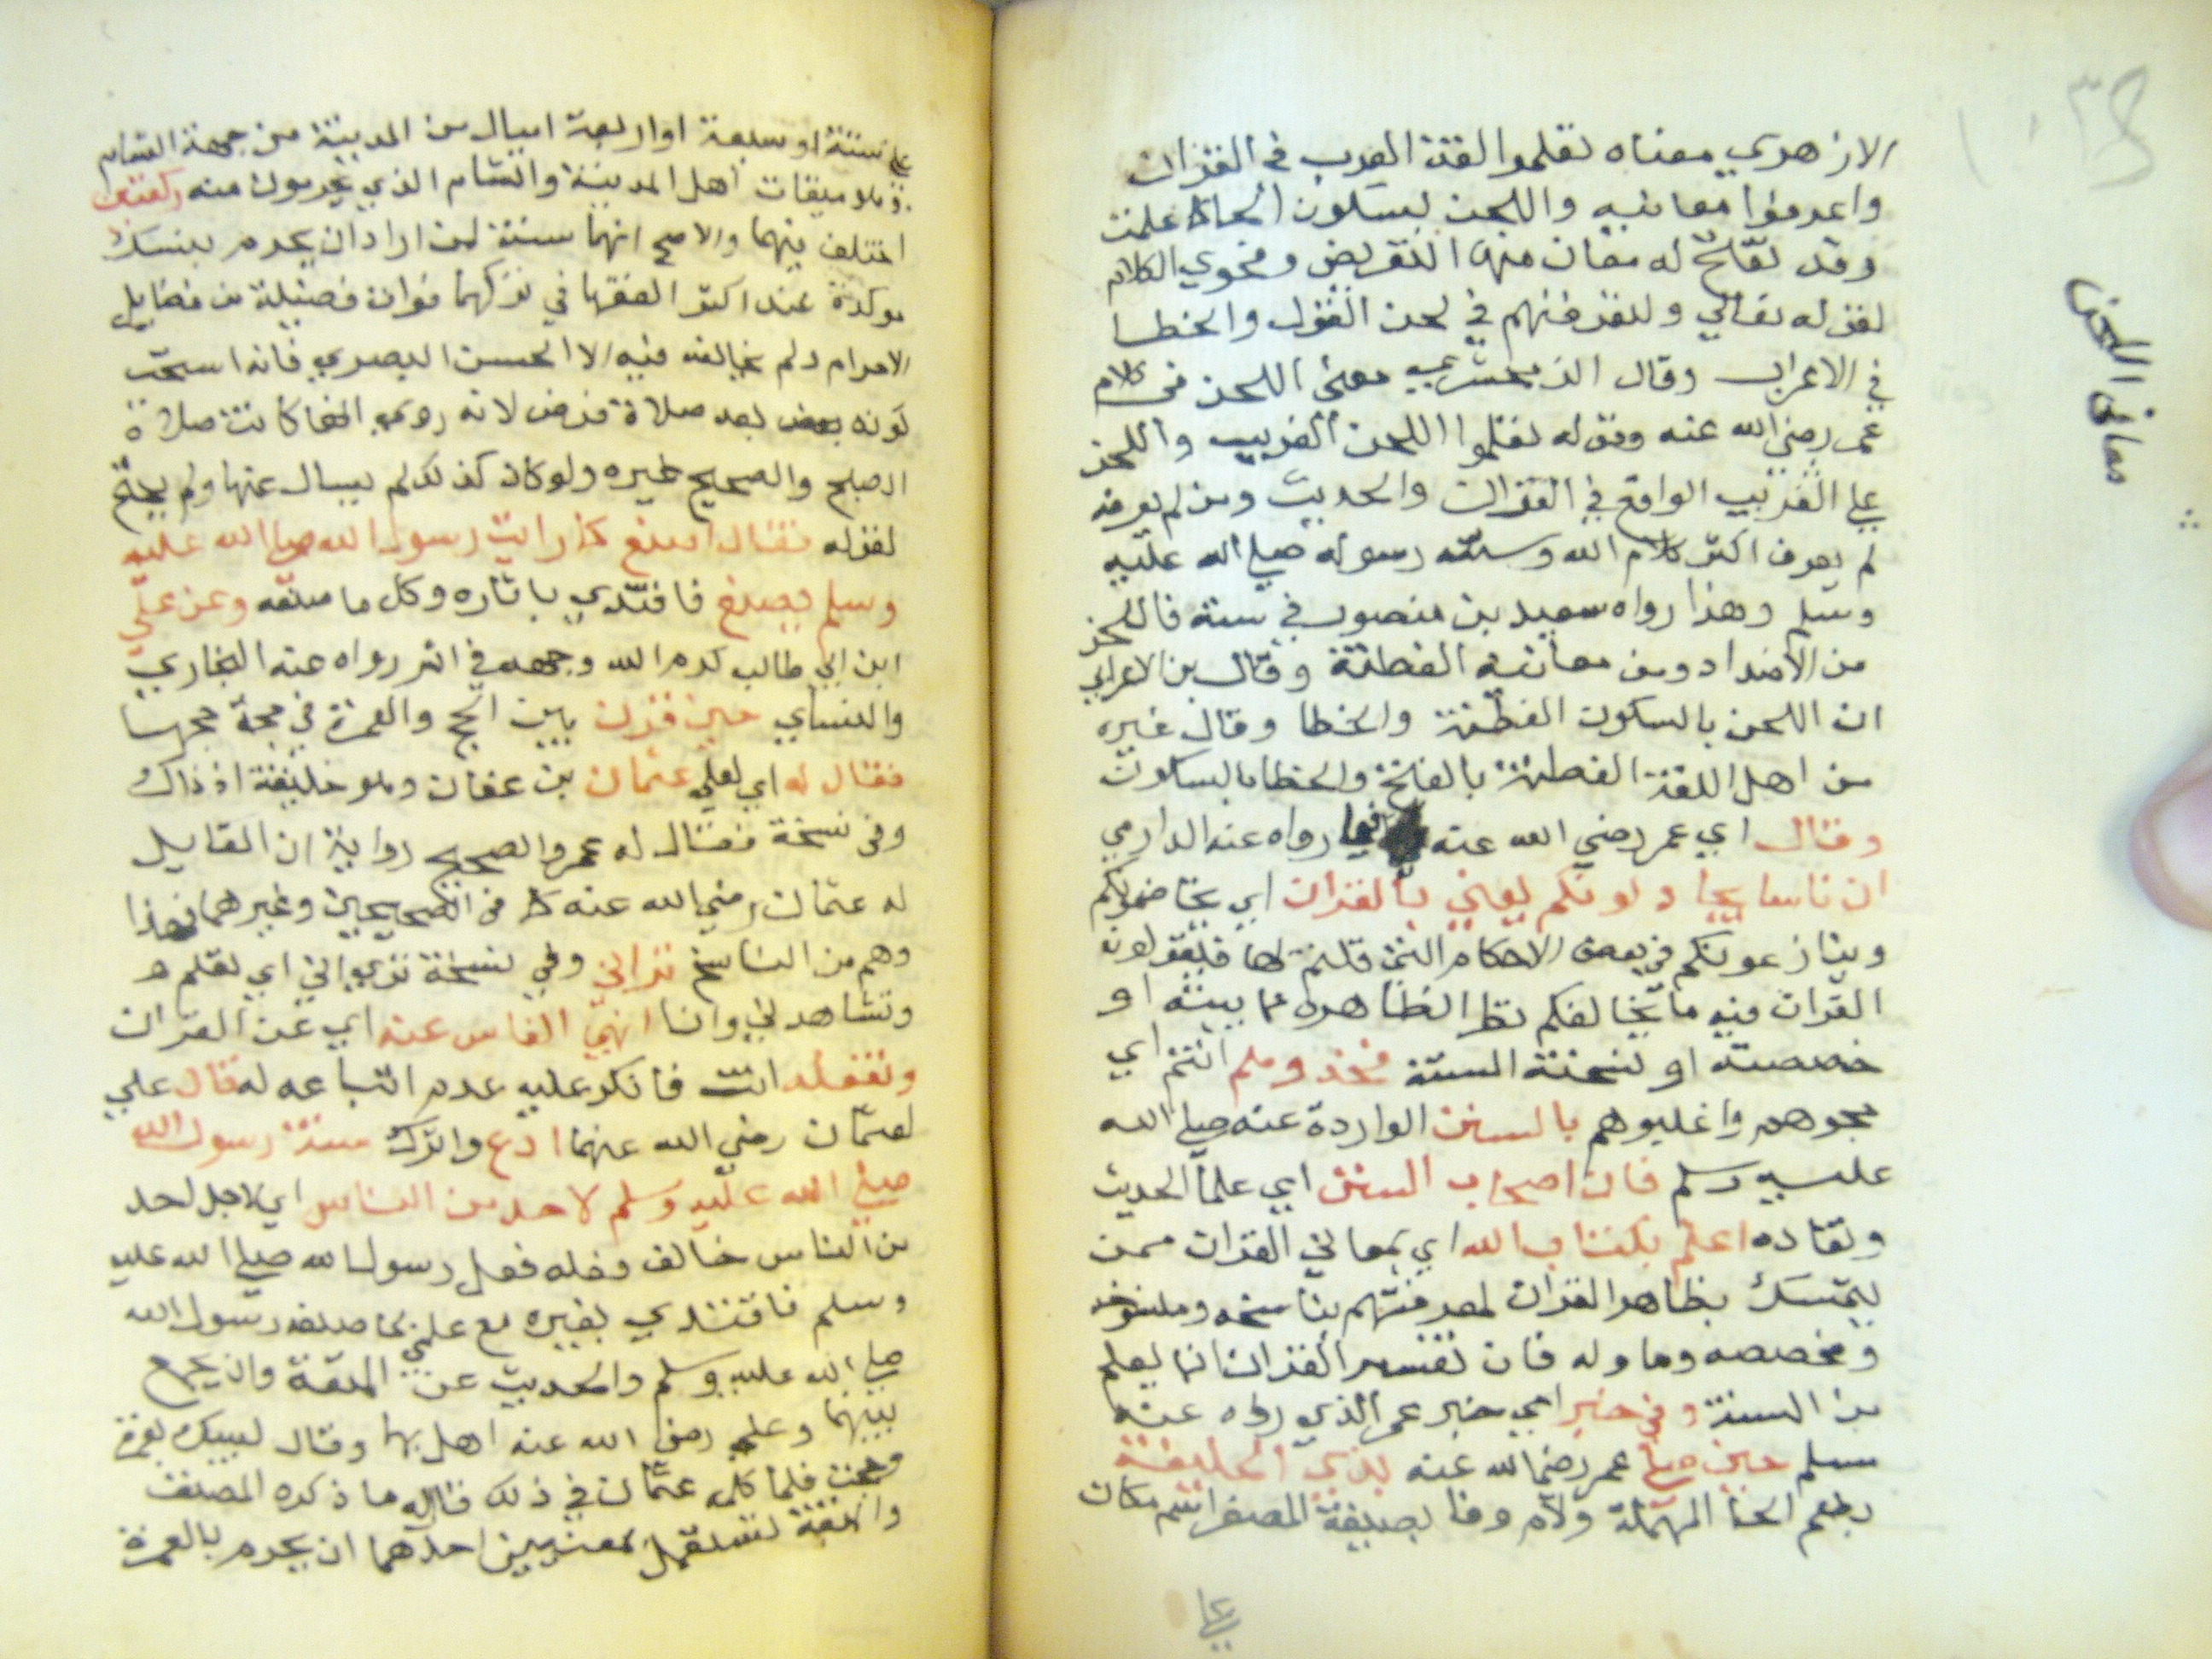 الازهري معناه تعلموا لغة العرب في القران
واعرفوا معانيه واللحن بسكون الحاء كما علمت
وقد تفتح له معان منها التعريض وفحوي الكلام
لقوله تعالي ولتعرفنهم في لحن القول والخطا
في الاعراب وقال الزمخشري معني اللحن في كلام
عمر رضي الله عنه وقوله تعلموا اللحن الغريب واللحن
علي الغريب الواقع في القران والحديث ومن لم يعرفه
لم يعرف اكثر كلام الله وسنة رسوله صلي الله عليه
وسلم وهذا رواه سعيد بن منصور في سننه فاللحن
من الاضداد ومن معانيه الفطنة وقال بن الاعرابي
ان اللحن بالسكون الفطنة والخطا وقال غيره
من اهل اللغة الفطنة بالفتح والخطا بالسكون
وقال اي عمر رضي الله عنه فيما رواه عنه الدارمي
ان ناسا يجادلونكم يعني بالقران اي يخاصمونكم
وينازعونكم في بعض الاحكام التي قلتم بها فيقولون
القران فيه ما يخالفكم نظر الظاهره مما بينته او
خصصته او نسخته السنة فخذوهم انتم اي
حجوهم واغلبوهم بالسنن الواردة عنه صلي الله
عليه وسلم فان اصحاب السنن اي علما الحديث
ونقاده اعلم بكتاب الله اي بمعاني القران ممن
يتمسك بظاهر القران لمعرفتهم بناسخه ومنسوخه
ومخصصه وماوله فان تفسير القران انما يعلم
من السنة وفي خبر اي خبر عمر الذي رواه عنه
مسلم حين صلي عمر رضي الله عنه بذي الحليفة
بضم الحا المهملة ولام وفا بصيغة المصغر اسم مكان
علي
معاني اللحن
علي ستة او سبعة او اربعة اميال من المدينة من جهة الشام
وهو ميقات اهل المدينة والشام الذي يحرمون منه ركعتين
اختلف فيهما والاصح انهما سنة لمن اراد ان يحرم بنسك
موكدة عند اكثر الفقها في تركهما فوات فضيلة من فضايل
الاحرام ولم يخالف فيه الا الحسن البصري فانه استحب
كونه بعد صلاة فرض لانه روي انها كانت صلاة
الصبح والصحيح غيره ولو كان كذلك لم يسال عنها ولم يحتج
لقوله فقال اصنع كما رايت رسول الله صلي الله عليه
وسلم يصنع فاقتدي باثاره وكل ما صنعه وعن علي
ابن ابي طالب كرم الله وجهه في اثر رواه عنه البخاري
والنساي حين قرن بين الحج والعمرة في حجة حجها
فقال له اي لعلي عثمان بن عفان وهو خليفة اذ ذاك
وفي نسخة فقال له عمر والصحيح رواية ان القايل
له عثمان رضي الله عنه كما في الصحيحين وغيرهما فهذا
وهم من الناسخ تراني وفي نسخة تري اني اي تعلم
وتشاهدني وانا انهي الناس عنه اي عن القران
وتفعله انت فانكر عليه عدم اتباعه له قال علي
لعثمان رضي الله عنهما ادع واترك سنة رسول الله
صلي الله عليه وسلم لاحد من الناس اي لاجل احد
من الناس خالف فعله فعل رسول الله صلي الله عليه
وسلم فاقتدي بغيره مع علمي بما صنعه رسول الله
صلي الله عليه وسلم والحديث عن المتعة وان يجمع
بينهما وعلي رضي الله عنه اهل بهما وقال لبيك بعمرة
وحجة فلما كلمه عثمان في ذلك قال له ما ذكره المصنف
والمتعة تستعمل بمعنيين احدهما ان يحرم بالعمرة